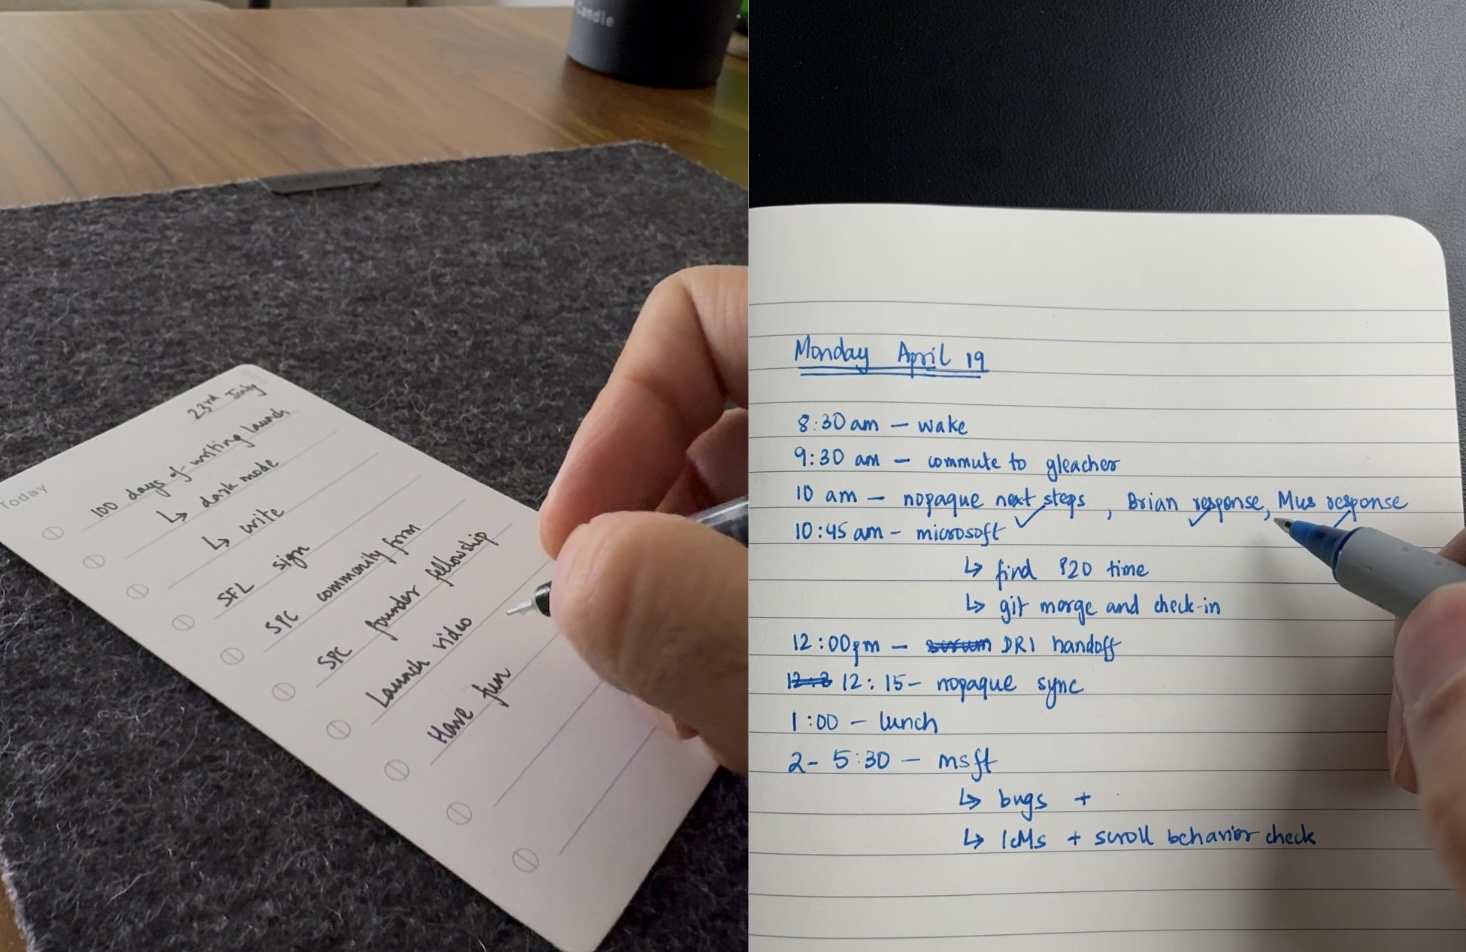 Candle
Today
23rd July
100 days of writing launch
↳ dark mode
↳ write
SFL sign
SPC community form
SPC founder fellowship
Launch video
Have fun
Monday April 19
8:30 am – wake
9:30 am – commute to gleacher
10 am – nopaque next steps, Brian response, Mus response
10:45 am – microsoft
↳ find P20 time
↳ git merge and check-in
12:00pm – scrum DRI handoff
12:15 – nopaque sync
1:00 – lunch
2- 5:30 – msft
↳ bugs +
↳ ICMs + scroll behavior check